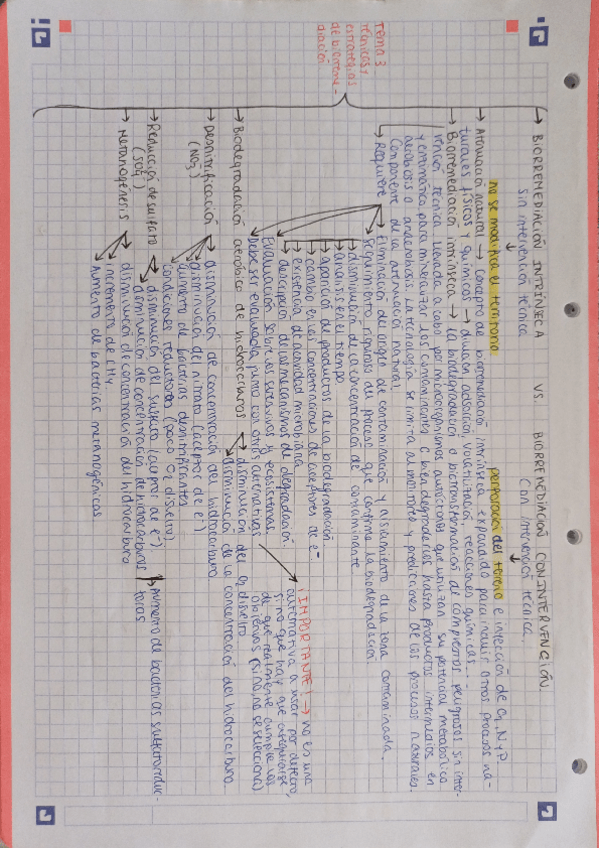 Tema 3
técnicas y
estrategias
de biorreme-
diación
→ BIORREMEDIACIÓN INTRÍNSECA VS. BIORREMEDIACIÓN CON INTERVENCIÓN
sin intervención técnica Con intervención técnica.
no se modifica el territorio perforación del terreno e inyección de O2, N y P.
→ Atenuación natural → concepto de biorremediación intrínseca expandido para incluir otros procesos na-
turales físicos y químicos → dilución, adsorción, volatilización, reacciones químicas...
→ Biorremediación intrínseca → la biodegradación o biotransformación de compuestos peligrosos sin inter-
vención técnica llevada a cabo por microorganismos autóctonos que utilizan su potencial metabólico
y enzimático para mineralizar los contaminantes o bien degradarlos hasta productos intermedios en
aerobiosis o anaerobiosis. La tecnología se limita al monitoreo y predicciones de los procesos naturales.
Componente de la atenuación natural.
→ Requiere → Eliminación del origen de contaminación y aislamiento de la zona contaminada.
→ seguimiento riguroso del proceso que confirme la biodegradación
→ disminución de la concentración de contaminante.
→ análisis en el tiempo
→ aparición de productos de la biodegradación
→ cambio en las concentraciones de aceptores de e-
→ existencia de actividad microbiana
→ descripción de los mecanismos de degradación.
Evaluación sobre los sustratos y ecosistemas.
Debe ser evaluada junto con otras alternativas → ¡IMPORTANTE! → no es una
alternativa a usar por defecto,
sino que hay que asegurarse
de que realmente cumple los
objetivos (si no, no se selecciona)
→ Biodegradación aeróbica de hidrocarburos → disminución del O2 disuelto
→ disminución de la concentración del hidrocarburo.
→ Desnitrificación → disminución de concentración del hidrocarburo.
(NO3-) → disminución de nitrato (aceptor de e-)
→ aumento de bacterias desnitrificantes
condiciones reductoras (poco O2 disuelto)
→ Reducción de sulfato → disminución del sulfato (aceptor de e-) → Aumento de bacterias sulfatorreduc-
(SO4=) → disminución de concentración de hidrocarburos toras
→ Metanogénesis → disminución de concentración del hidrocarburo
→ incremento de CH4
Aumento de bacterias metanogénicas.